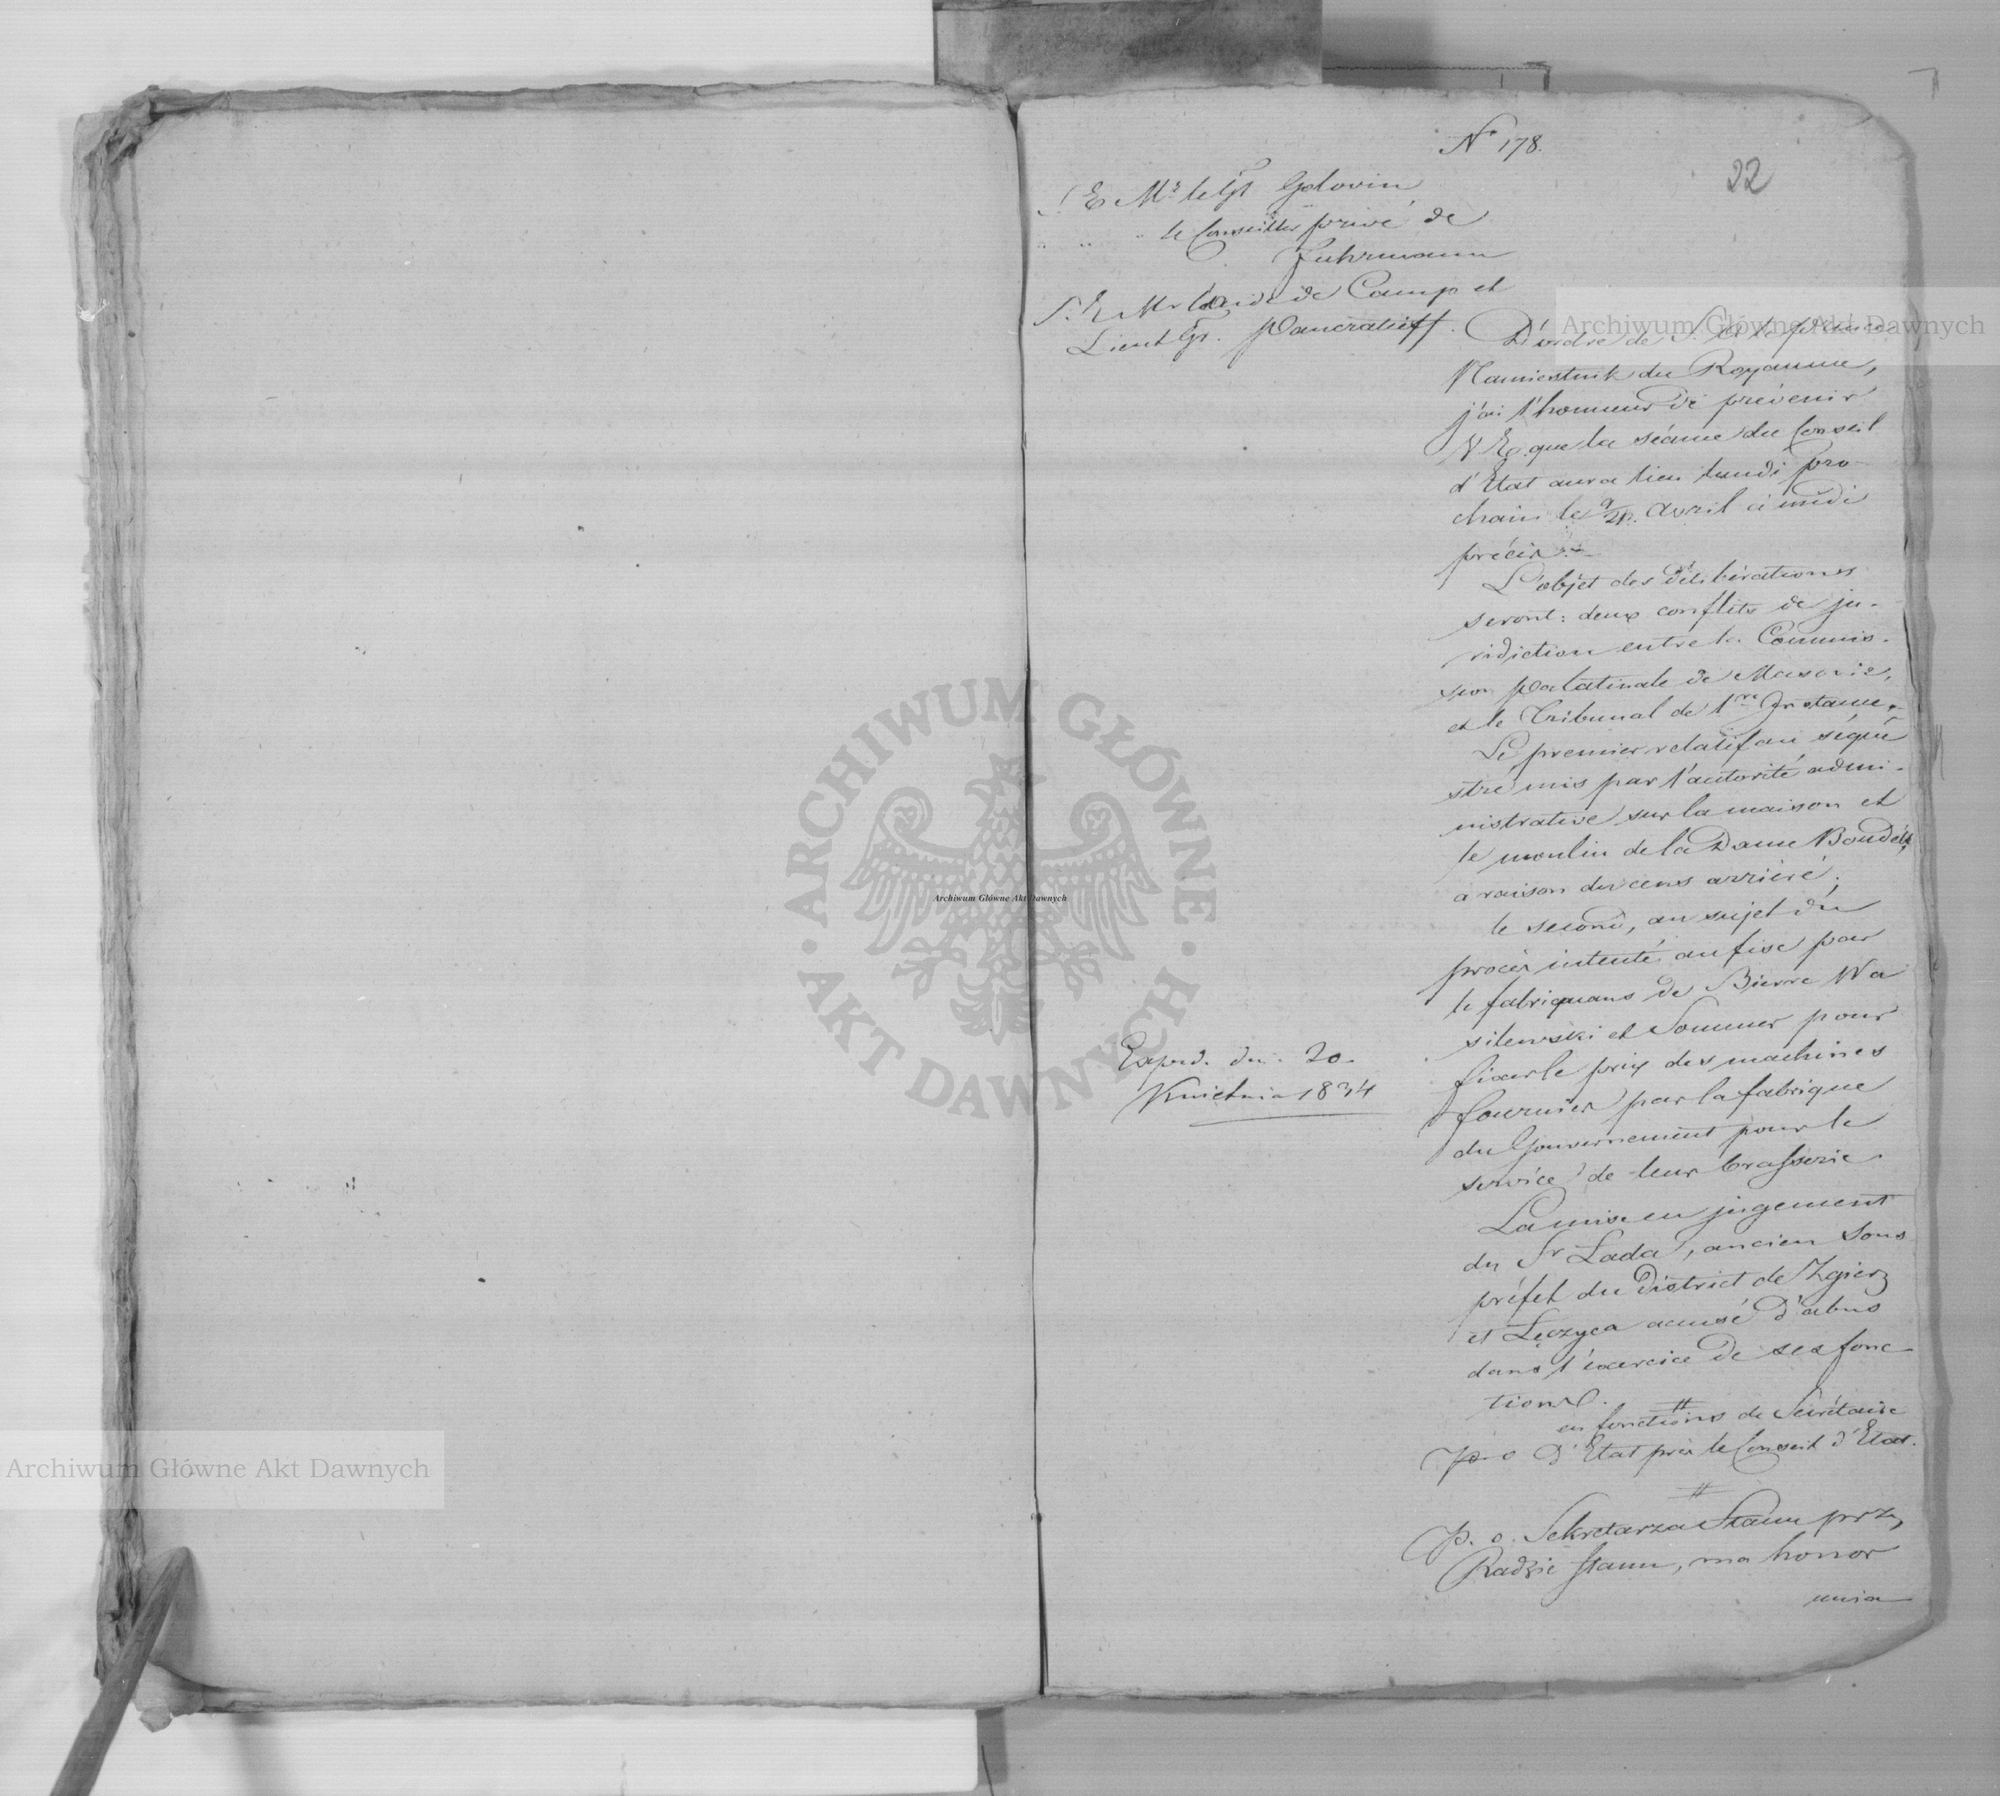 Nº 178.
22
S. E. Mr le Gl Golovin
" " " le Conseiller privé de
Fuhrmann
S. E. Mr l'aide de Camp et
Lieut Gl. Pancratieff.
D'ordre de S. A. le prince
Namiestnik du Royaume,
j'ai l'honneur de prévenir
V. E. que la séance du Conseil
d'Etat aura lieu lundi pro-
chain le 9/21. Avril à midi
précis.
L'objet des délibérations
seront: deux conflits de ju-
ridiction entre la Commis-
sion Palatinale de Masovie,
et le Tribunal de 1re Instance.
Le premier relatif au séque
stre mis par l'autorité admi-
nistrative sur la maison et
le moulin de la Dame
a raison du cens arriéré;
le second, au sujet du
procès intenté au fisc par
le fabriquans de Bierre Wa
silewski et Sommer pour
fixer le prix des machines
fournies par la fabrique
du Gouvernement pour le
service de leur brasserie.
La mise en jugement
du Sr Łada, ancien Sous
préfet du District de Zgierz
et Łęczyca accusé d'abus
dans l'exercice de ses fonc-
tions.
en fonctions de Secrétaire
p. o D'Etat près le Conseil d'Etat.
P. o. Sekretarza Stanu przy
Radzie Stanu, ma honor
Exped. dn. 20.
Kwietnia 1834
Archiwum Główne Akt Dawnych
ARCHIWUM GŁÓWNE · AKT DAWNYCH ·
Archiwum Główne Akt Dawnych
Archiwum Główne Akt Dawnych